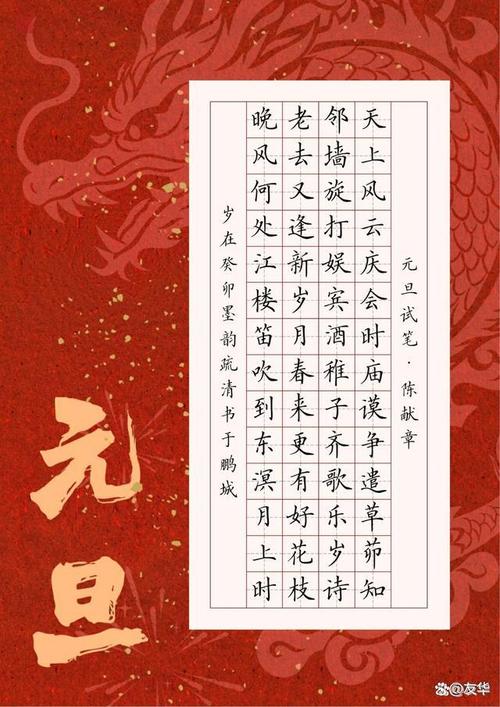 元旦试笔·陈献章
天上风云庆会时庙谟争遣草茆知
邻墙旋打娱宾酒稚子齐歌乐岁诗
老去又逢新岁月春来更有好花枝
晚风何处江楼笛吹到东溟月上时
岁在癸卯墨韵疏清书于鹏城
元旦
@友华